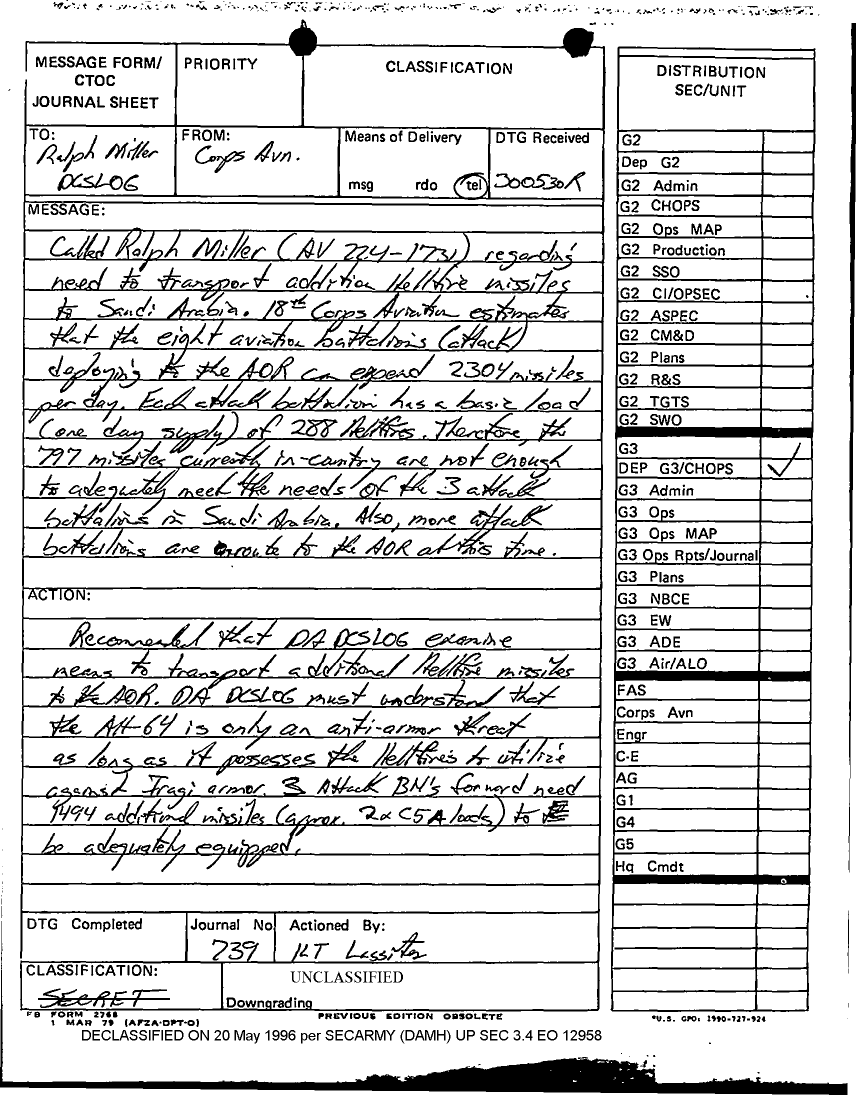 MESSAGE FORM/
CTOC
JOURNAL SHEET
PRIORITY
CLASSIFICATION
TO:
Ralph Miller
DCSLOG
FROM:
Corps Avn.
Means of Delivery
msg rdo tel
DTG Received
300530R
MESSAGE:
Called Ralph Miller (AV 224-1731) regarding
need to transport addition Hellfire missiles
to Saudi Arabia. 18th Corps Aviation estimates
that the eight aviation battalions (attack)
deploying to the AOR can expend 2304 missiles
per day. Each attack battalion has a basic load
(one day supply) of 288 Hellfires. Therefore, the
797 missiles currently in-country are not enough
to adequately meet the needs of the 3 attack
battalions in Saudi Arabia. Also, more attack
battalions are enroute to the AOR at this time.
ACTION:
Recommended that DA DCSLOG examine
means to transport additional Hellfire missiles
to the AOR. DA DCSLOG must understand that
the AH-64 is only an anti-armor threat
as long as it possesses the Hellfires to utilize
against Iraqi armor. 3 Attack BN's forward need
1494 additional missiles (aprox. 2x C5A loads) to
be adequately equipped.
DTG Completed
Journal No
739
Actioned By:
1LT Lassiter
CLASSIFICATION:
SECRET
UNCLASSIFIED
Downgrading
FB FORM 2768
1 MAR 79 (AFZA-DPT-O)
PREVIOUS EDITION OBSOLETE
DECLASSIFIED ON 20 May 1996 per SECARMY (DAMH) UP SEC 3.4 EO 12958
DISTRIBUTION
SEC/UNIT
G2
Dep G2
G2 Admin
G2 CHOPS
G2 Ops MAP
G2 Production
G2 SSO
G2 CI/OPSEC
G2 ASPEC
G2 CM&D
G2 Plans
G2 R&S
G2 TGTS
G2 SWO
G3
DEP G3/CHOPS ✓
G3 Admin
G3 Ops
G3 Ops MAP
G3 Ops Rpts/Journal
G3 Plans
G3 NBCE
G3 EW
G3 ADE
G3 Air/ALO
FAS
Corps Avn
Engr
C-E
AG
G1
G4
G5
Hq Cmdt
*U.S. GPO: 1990-727-924